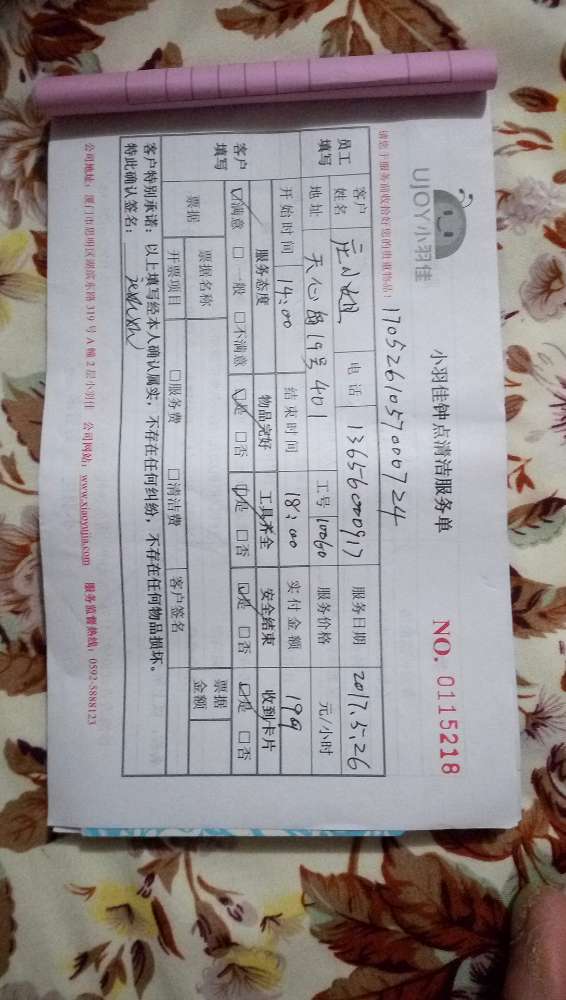 UJOY小羽佳
小羽佳钟点清洁服务单
NO. 0115218
请您于服务前收拾好您的贵重物品!
17052610570007 24
员工填写
客户姓名 庄小姐 电话 13656000917 服务日期 2017.5.26
地址 天心岛19号401 工号 10060 服务价格 元/小时
开始时间 14:00 结束时间 18:00 实付金额 199
客户填写
服务态度 物品完好 工具齐全 安全结束 收到卡片
☑满意 □一般 □不满意 ☑是 □否 ☑是 □否 ☑是 □否 ☑是 □否
票据 票据名称 票据金额
开票项目 □服务费 □清洁费 客户签名
客户特别承诺:以上填写经本人确认属实,不存在任何纠纷,不存在任何物品损坏。
特此确认签名:
公司地址:厦门市思明区湖滨东路319号A幢2层小羽佳 公司网站:www.xiaoyujia.com 服务监督热线:0592-5888123